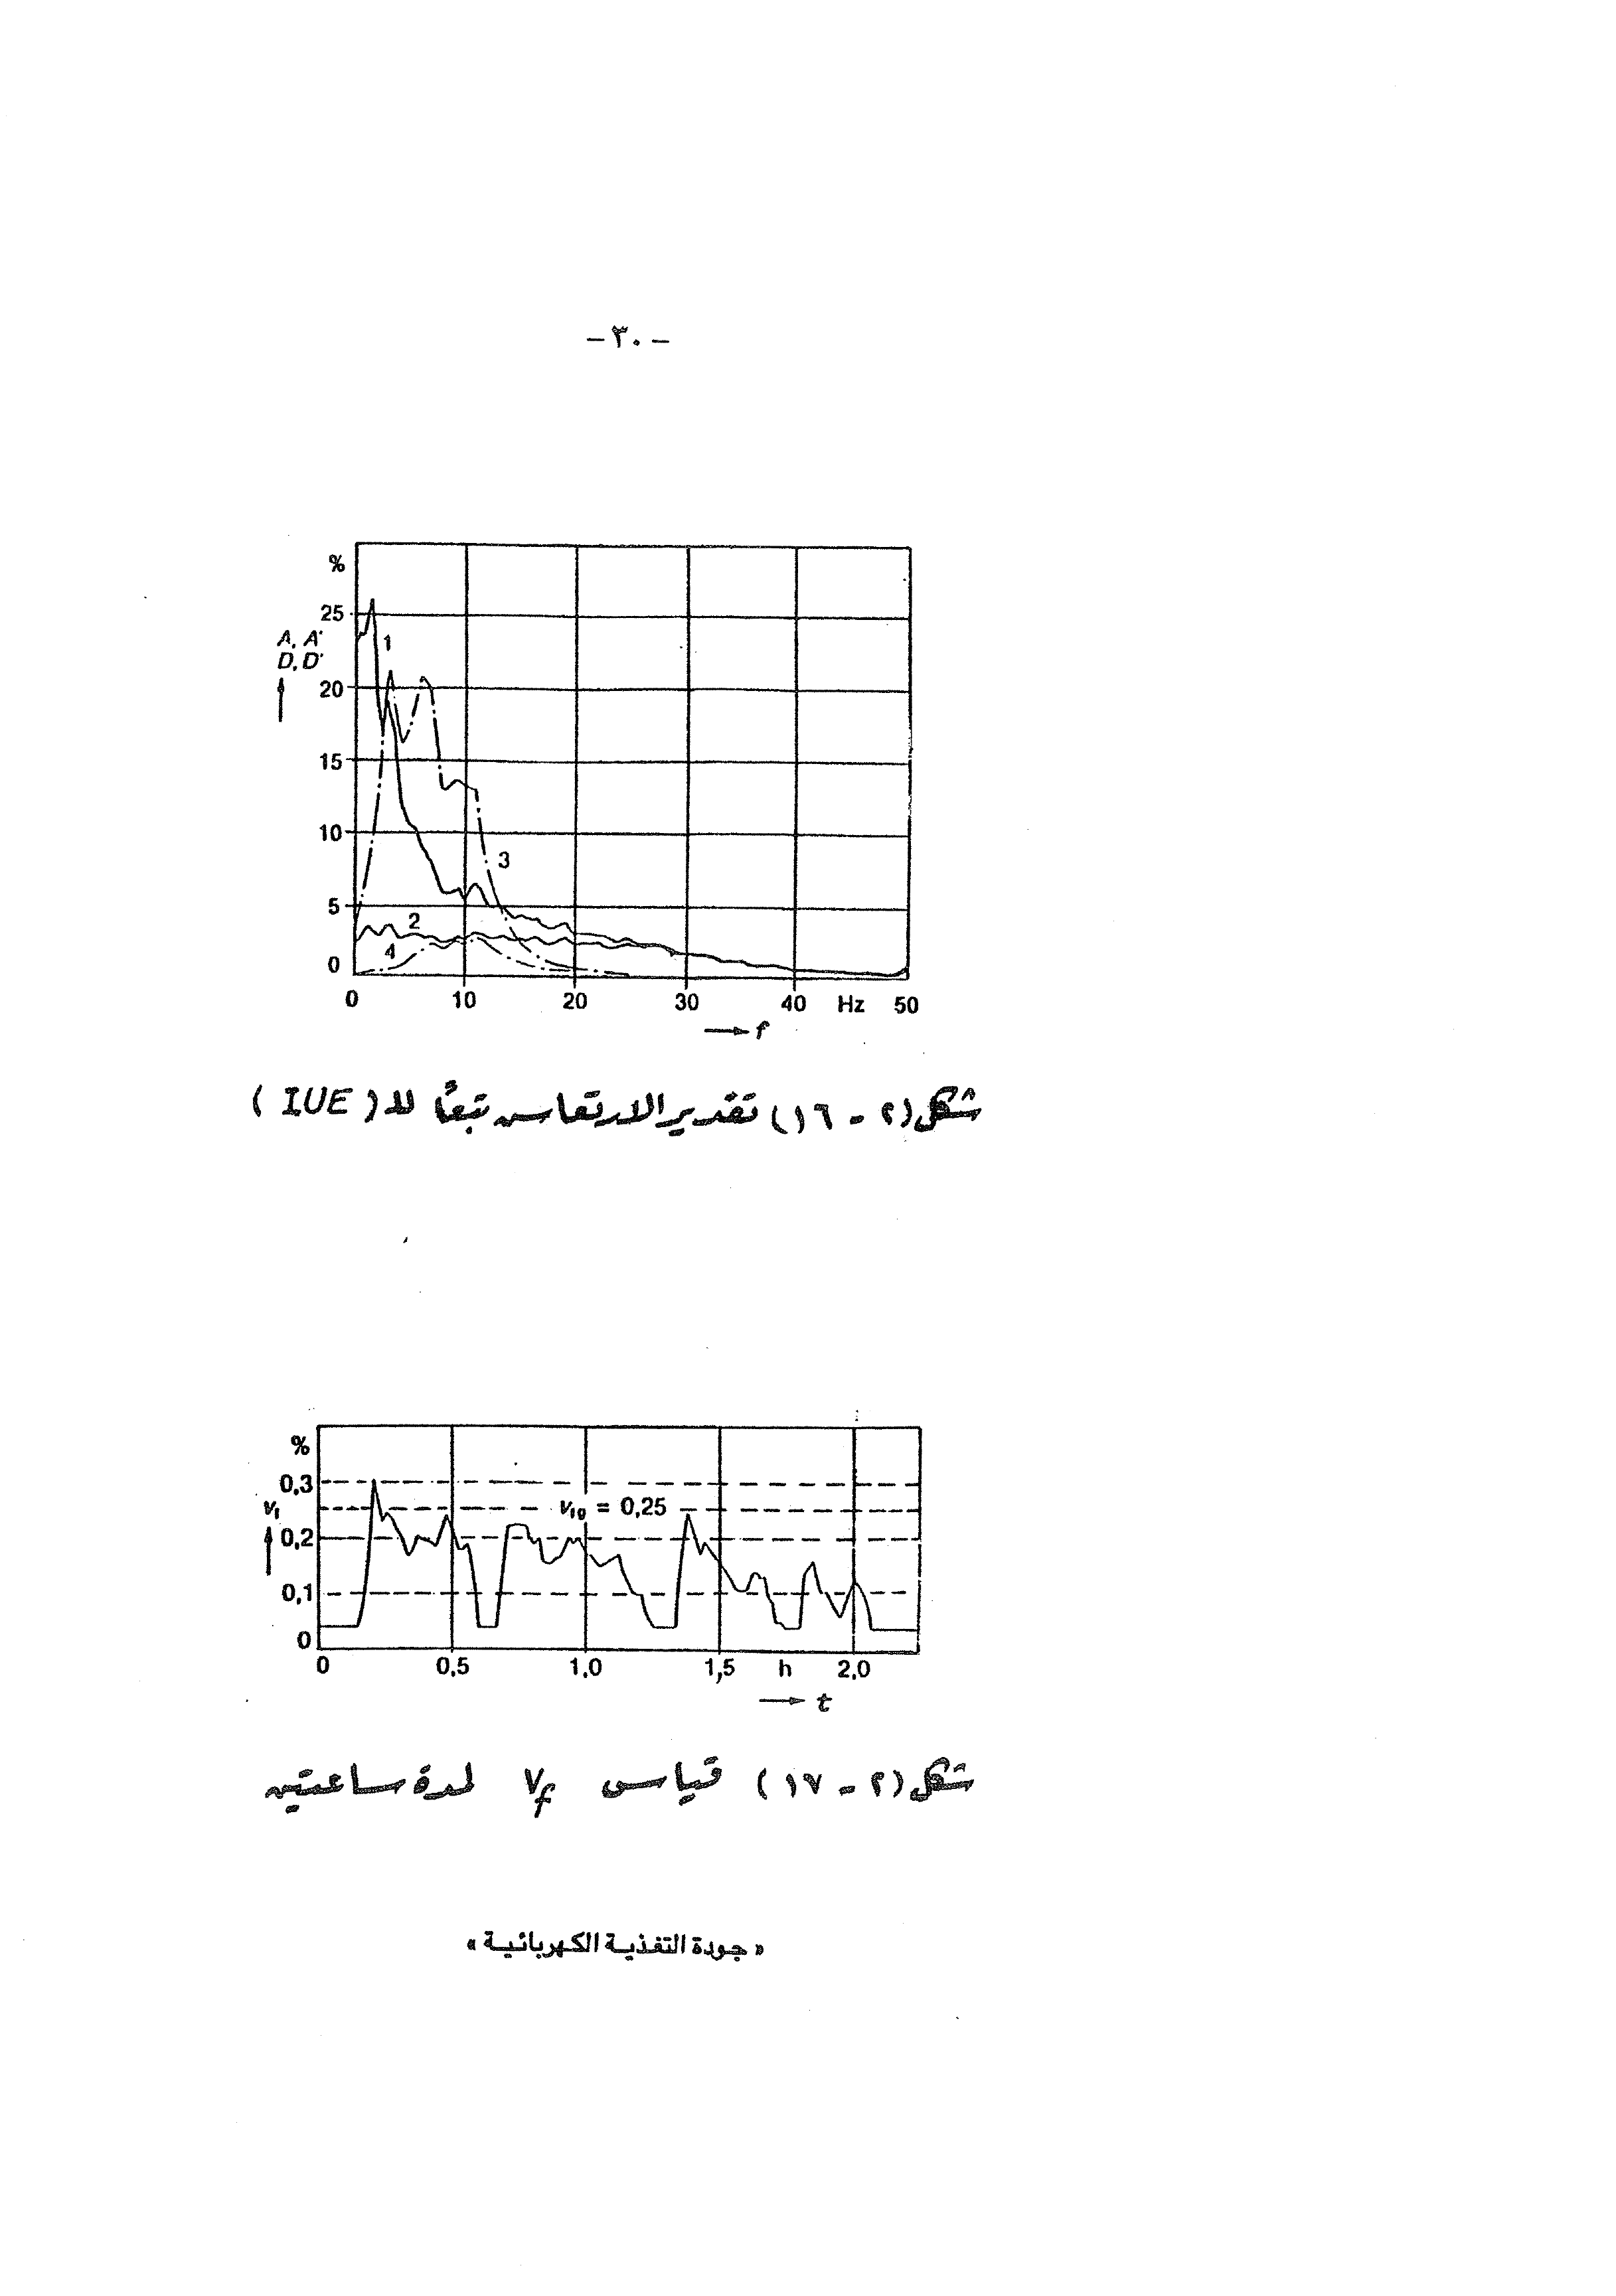 - ٣٠ -
%
25
A, A'
D, D'
20
15
10
5
0
1
2
3
4
0 10 20 30 40 Hz 50
f
شكل (٢ - ١٦) تقدير الارتعاس تبعاً للـ (IUE)
%
0,3
0,2
0,1
0
= 0,25
0 0,5 1,0 1,5 h 2,0
t
شكل (٢ - ١٧) قياس Vf لمدة ساعتين
« جودة التغذية الكهربائية »